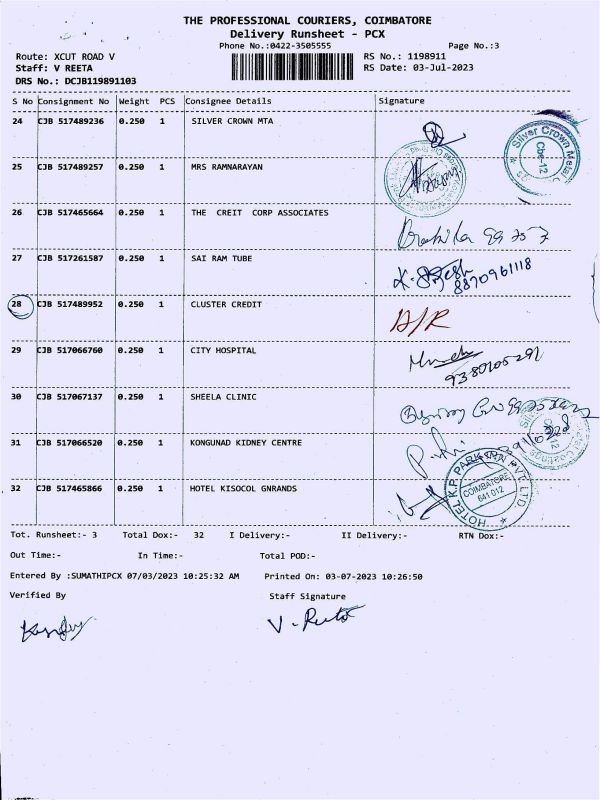 THE PROFESSIONAL COURIERS, COIMBATORE
Delivery Runsheet - PCX
Phone No.:0422-3505555 Page No.:3
Route: XCUT ROAD V RS No.: 1198911
Staff: V REETA RS Date: 03-Jul-2023
DRS No.: DCJB119891103
S No Consignment No Weight PCS Consignee Details Signature
24 CJB 517489236 0.250 1 SILVER CROWN MTA
Silver Crown Metal
Cbe-12
25 CJB 517489257 0.250 1 MRS RAMNARAYAN
26 CJB 517465664 0.250 1 THE CREIT CORP ASSOCIATES
27 CJB 517261587 0.250 1 SAI RAM TUBE
8870961118
28 CJB 517489952 0.250 1 CLUSTER CREDIT
A/R
29 CJB 517066760 0.250 1 CITY HOSPITAL
9380105291
30 CJB 517067137 0.250 1 SHEELA CLINIC
31 CJB 517066520 0.250 1 KONGUNAD KIDNEY CENTRE
32 CJB 517465866 0.250 1 HOTEL KISOCOL GNRANDS
HOTEL K.P. PARK INN PVT LTD.
COIMBATORE
641 012
Tot. Runsheet:- 3 Total Dox:- 32 I Delivery:- II Delivery:- RTN Dox:-
Out Time:- In Time:- Total POD:-
Entered By :SUMATHIPCX 07/03/2023 10:25:32 AM Printed On: 03-07-2023 10:26:50
Verified By Staff Signature
V. Reeta